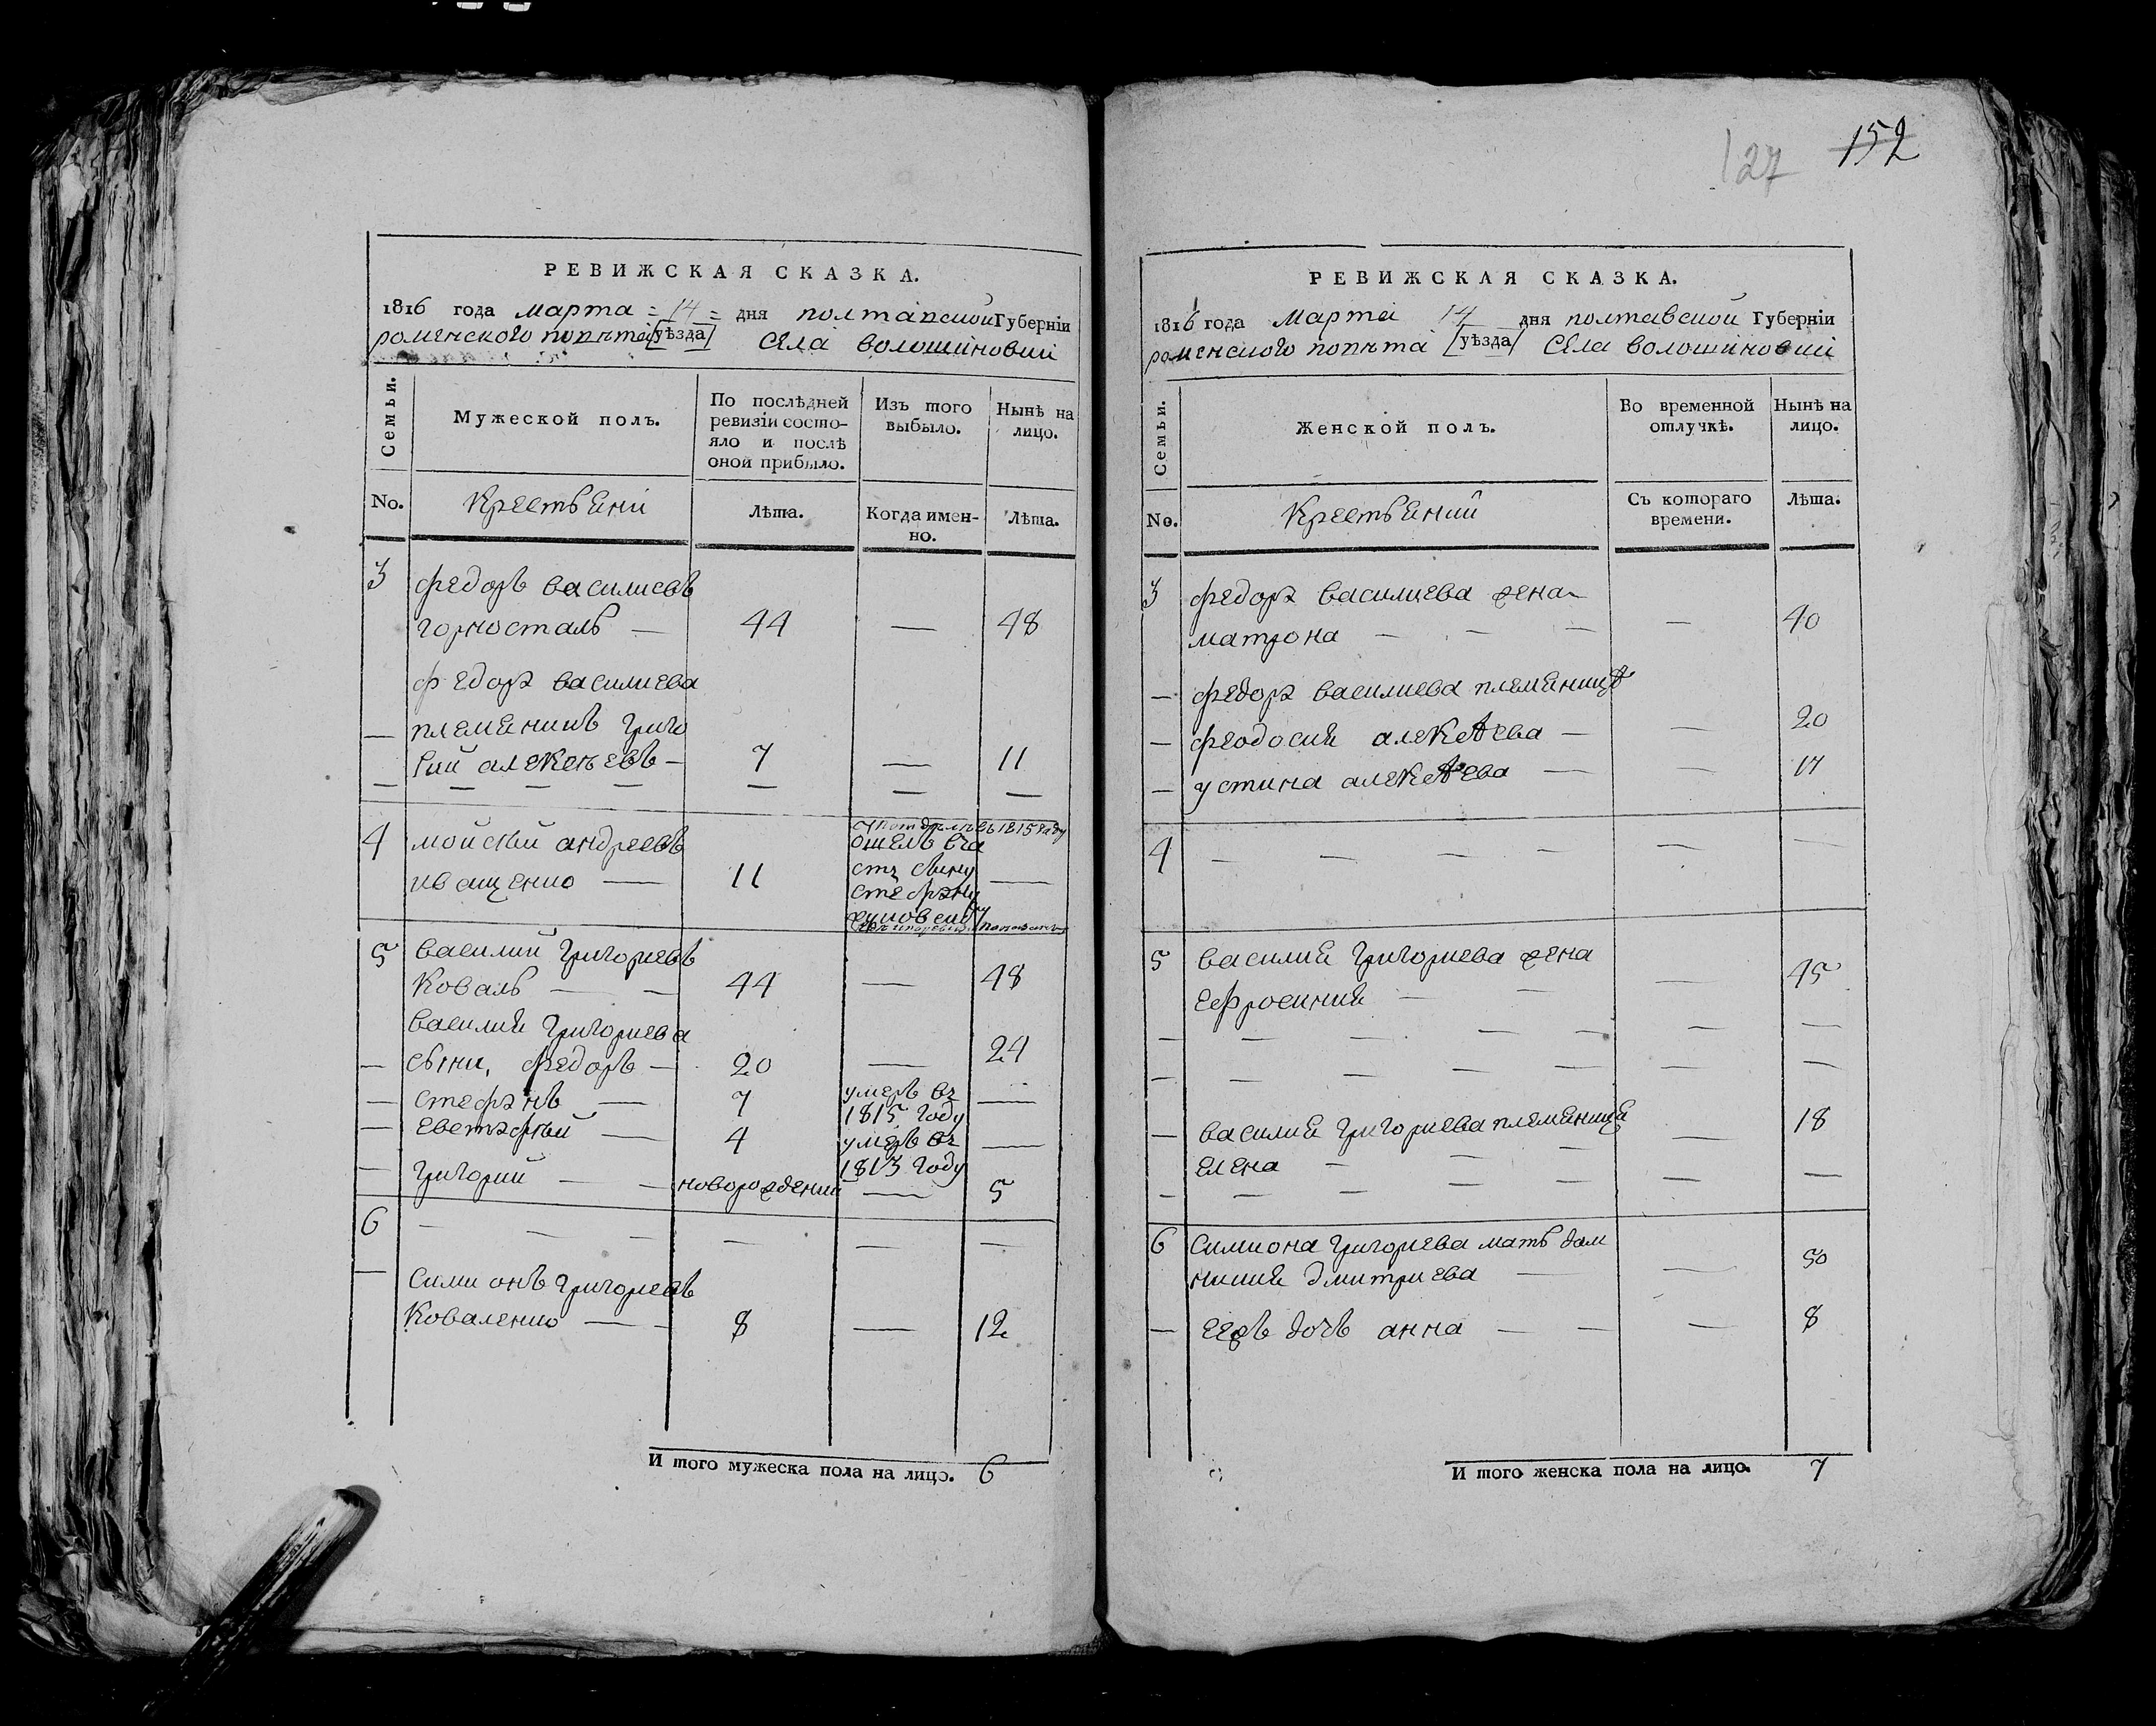 127 152
РЕВИЖСКАЯ СКАЗКА.
1816 года марта = 14 = дня полтавской Губерніи
роменского повѣта [уѣзда] Села волошиновки
Семьи.
Мужеской полъ.
По послѣдней ревизіи состо-
яло и послѣ
оной прибыло.
Изъ того
выбыло.
Нынѣ на
лицо.
No.
Крестьяни
Лѣта.
Когда имен-
но.
Лѣта.
3 федоръ василиевъ
горносталь — 44 — 48
федора василиева
— племянникъ григо
рий алексѣевъ — 7 — 11
— — — — — — —
4 мойсѣй андреевъ
иващенко — 11 —
въ 1815 году
5 василий григориевъ
Коваль — — 44 — 48
василия григориева
— сыни, федоръ — 20 — 24
— стефанъ — 7 умеръ въ
1815 году —
— евстафий — 4 умеръ въ
1813 году —
— григорий — — новорождений — 5
6 — — — — — —
— симионъ григориевъ
Коваленко — — 8 — 12
И того мужеска пола на лицо. 6
РЕВИЖСКАЯ СКАЗКА.
1816 года Марта 14 дня полтавской Губерніи
роменского повѣта [уѣзда] Села волошиновки
Семьи.
Женской полъ.
Во временной
отлучкѣ.
Нынѣ на
лицо.
No.
Крестьяний
Съ котораго
времени.
Лѣта.
3 федора василиева жена
матрона — — — — 40
— федора василиева племянница
— феодосия алексѣева — — 20
— устина алексѣева — — 17
4 — — — — — —
5 василия григориева жена
ефросиния — — — 45
— — — — — — —
— — — — — — —
— василия григориева племянница
елена — — — — 18
— — — — — — —
6 симиона григориева мать дом
никия дмитриева — — 50
— ееже дочь анна — — — 8
И того женска пола на лицо. 7